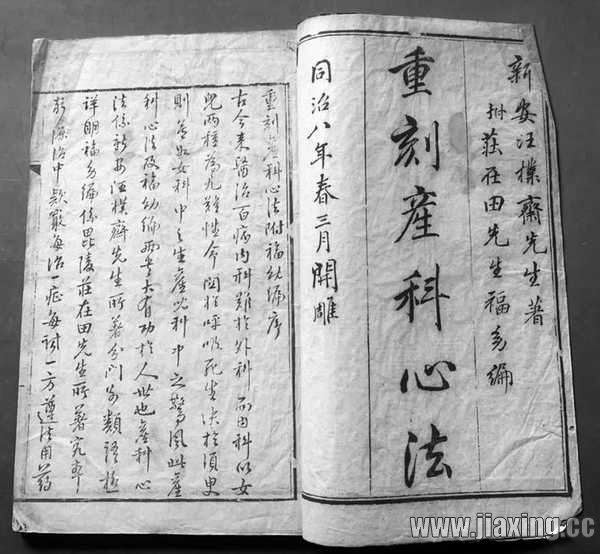 新安汪樸齋先生著
坿莊在田先生福幼編
重刻產科心法
同治八年春三月開雕
重刻產科心法附福幼編序
古今來醫治百病內科難於外科而內科以女
兒兩種為尤難性命關於呼吸死生決於須臾
則如女科中之生產兒科中之驚風此產
科心法及福幼編兩書大有功於人世也產科心
法係新安汪樸齋先生所著分門別類
詳明福幼編係毘陵莊在田先生所著究本
源治中款竅每治一症每討一方遵法用藥
www.jiaxing.cc